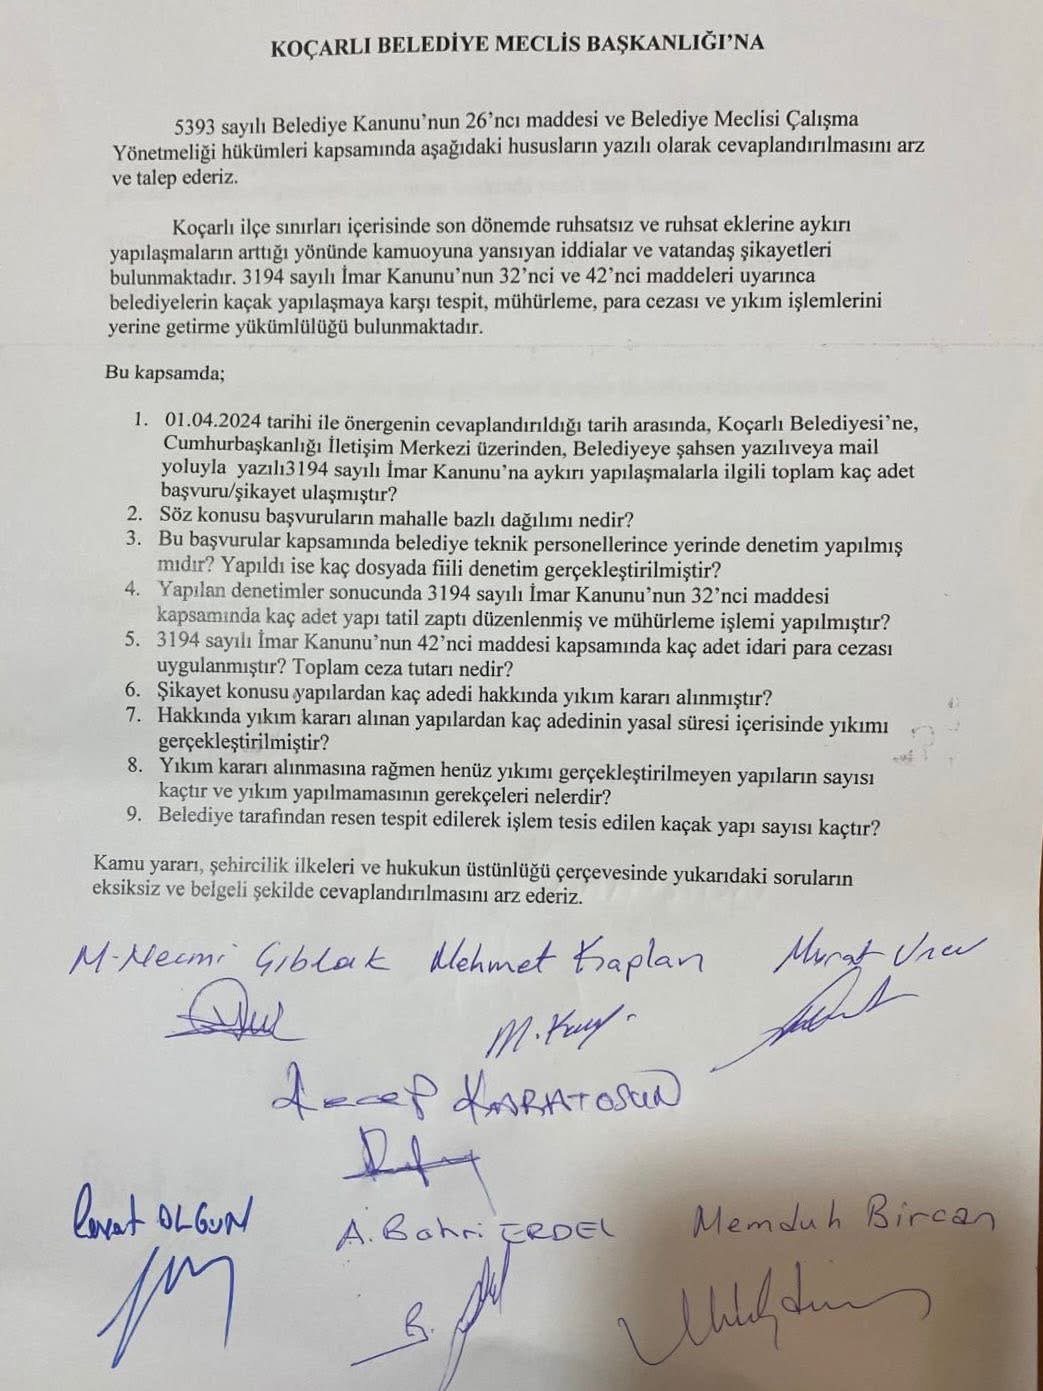 KOÇARLI BELEDİYE MECLİS BAŞKANLIĞI'NA
5393 sayılı Belediye Kanunu'nun 26'ncı maddesi ve Belediye Meclisi Çalışma
Yönetmeliği hükümleri kapsamında aşağıdaki hususların yazılı olarak cevaplandırılmasını arz
ve talep ederiz.
Koçarlı ilçe sınırları içerisinde son dönemde ruhsatsız ve ruhsat eklerine aykırı
yapılaşmaların arttığı yönünde kamuoyuna yansıyan iddialar ve vatandaş şikayetleri
bulunmaktadır. 3194 sayılı İmar Kanunu'nun 32'nci ve 42'nci maddeleri uyarınca
belediyelerin kaçak yapılaşmaya karşı tespit, mühürleme, para cezası ve yıkım işlemlerini
yerine getirme yükümlülüğü bulunmaktadır.
Bu kapsamda;
1. 01.04.2024 tarihi ile önergenin cevaplandırıldığı tarih arasında, Koçarlı Belediyesi'ne,
Cumhurbaşkanlığı İletişim Merkezi üzerinden, Belediyeye şahsen yazılıveya mail
yoluyla yazılı3194 sayılı İmar Kanunu'na aykırı yapılaşmalarla ilgili toplam kaç adet
başvuru/şikayet ulaşmıştır?
2. Söz konusu başvuruların mahalle bazlı dağılımı nedir?
3. Bu başvurular kapsamında belediye teknik personellerince yerinde denetim yapılmış
mıdır? Yapıldı ise kaç dosyada fiili denetim gerçekleştirilmiştir?
4. Yapılan denetimler sonucunda 3194 sayılı İmar Kanunu'nun 32'nci maddesi
kapsamında kaç adet yapı tatil zaptı düzenlenmiş ve mühürleme işlemi yapılmıştır?
5. 3194 sayılı İmar Kanunu'nun 42'nci maddesi kapsamında kaç adet idari para cezası
uygulanmıştır? Toplam ceza tutarı nedir?
6. Şikayet konusu yapılardan kaç adedi hakkında yıkım kararı alınmıştır?
7. Hakkında yıkım kararı alınan yapılardan kaç adedinin yasal süresi içerisinde yıkımı
gerçekleştirilmiştir?
8. Yıkım kararı alınmasına rağmen henüz yıkımı gerçekleştirilmeyen yapıların sayısı
kaçtır ve yıkım yapılmamasının gerekçeleri nelerdir?
9. Belediye tarafından resen tespit edilerek işlem tesis edilen kaçak yapı sayısı kaçtır?
Kamu yararı, şehircilik ilkeleri ve hukukun üstünlüğü çerçevesinde yukarıdaki soruların
eksiksiz ve belgeli şekilde cevaplandırılmasını arz ederiz.
M. Necmi Gıblak Mehmet Kaplan Murat
Recep KARATOSUN
Cevat OLGUN A. Bahri ERDEL Memduh Bircan